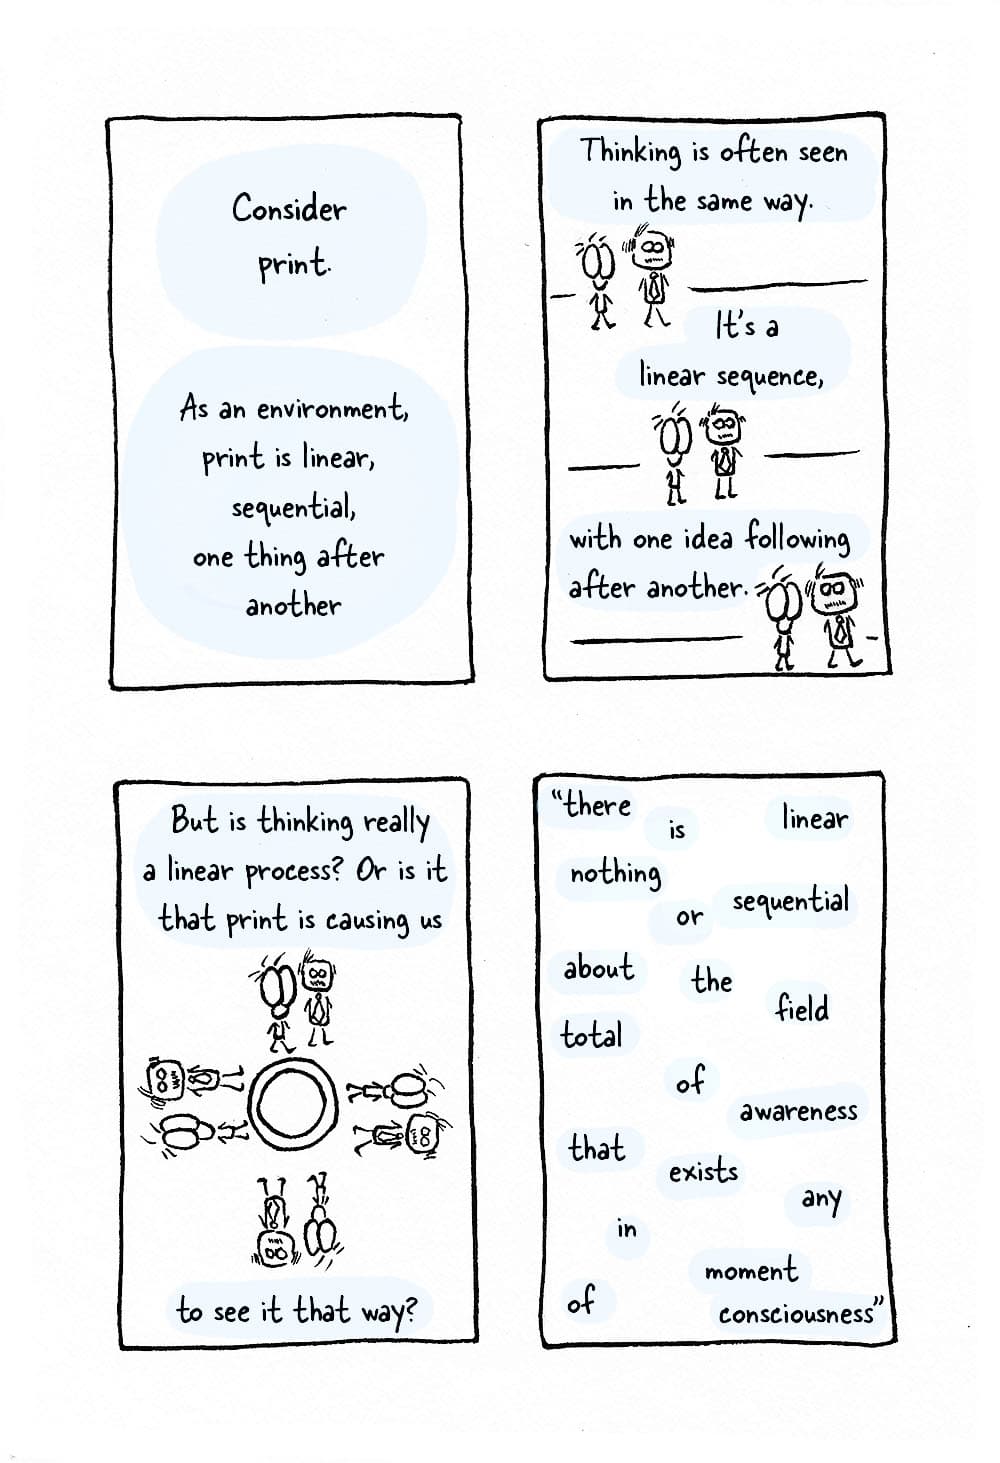 Consider
print.
As an environment,
print is linear,
sequential,
one thing after
another
Thinking is often seen
in the same way.
It's a
linear sequence,
with one idea following
after another.
But is thinking really
a linear process? Or is it
that print is causing us
to see it that way?
"there
is
linear
nothing
or
sequential
about
the
field
total
of
awareness
that
exists
any
in
moment
of
consciousness"